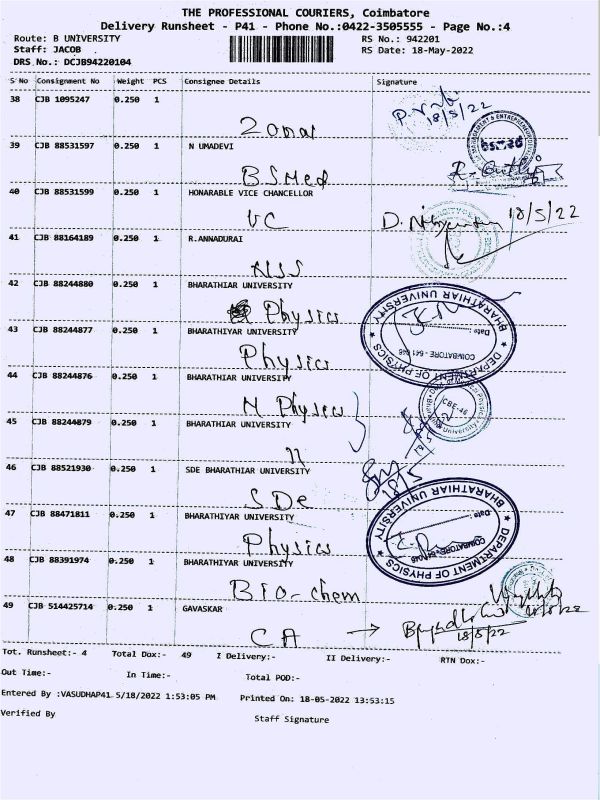 THE PROFESSIONAL COURIERS, Coimbatore
Delivery Runsheet - P41 - Phone No.:0422-3505555 - Page No.:4
Route: B UNIVERSITY RS No.: 942201
Staff: JACOB RS Date: 18-May-2022
DRS No.: DCJB94220104
S No Consignment No Weight PCS Consignee Details Signature
38 CJB 1095247 0.250 1
18/5/22
39 CJB 88531597 0.250 1 N UMADEVI
BSMed
bsmed
40 CJB 88531599 0.250 1 HONARABLE VICE CHANCELLOR
VC 18/5/22
41 CJB 88164189 0.250 1 R.ANNADURAI
NSS
42 CJB 88244880 0.250 1 BHARATHIAR UNIVERSITY
Physics
43 CJB 88244877 0.250 1 BHARATHIYAR UNIVERSITY
Physics
BHARATHIAR UNIVERSITY
Date :
COIMBATORE - 641 046
DEPARTMENT OF PHYSICS
44 CJB 88244876 0.250 1 BHARATHIAR UNIVERSITY
N Physics
CBE-46
45 CJB 88244879 0.250 1 BHARATHIAR UNIVERSITY
46 CJB 88521930 0.250 1 SDE BHARATHIAR UNIVERSITY
SDe 18/5
47 CJB 88471811 0.250 1 BHARATHIYAR UNIVERSITY
Physics
BHARATHIAR UNIVERSITY
Date :
COIMBATORE - 641 046
DEPARTMENT OF PHYSICS
48 CJB 88391974 0.250 1 BHARATHIYAR UNIVERSITY
Bio-chem
49 CJB 514425714 0.250 1 GAVASKAR
CA → 18/5/22
Tot. Runsheet:- 4 Total Dox:- 49 I Delivery:- II Delivery:- RTN Dox:-
Out Time:- In Time:- Total POD:-
Entered By :VASUDHAP41 5/18/2022 1:53:05 PM Printed On: 18-05-2022 13:53:15
Verified By Staff Signature